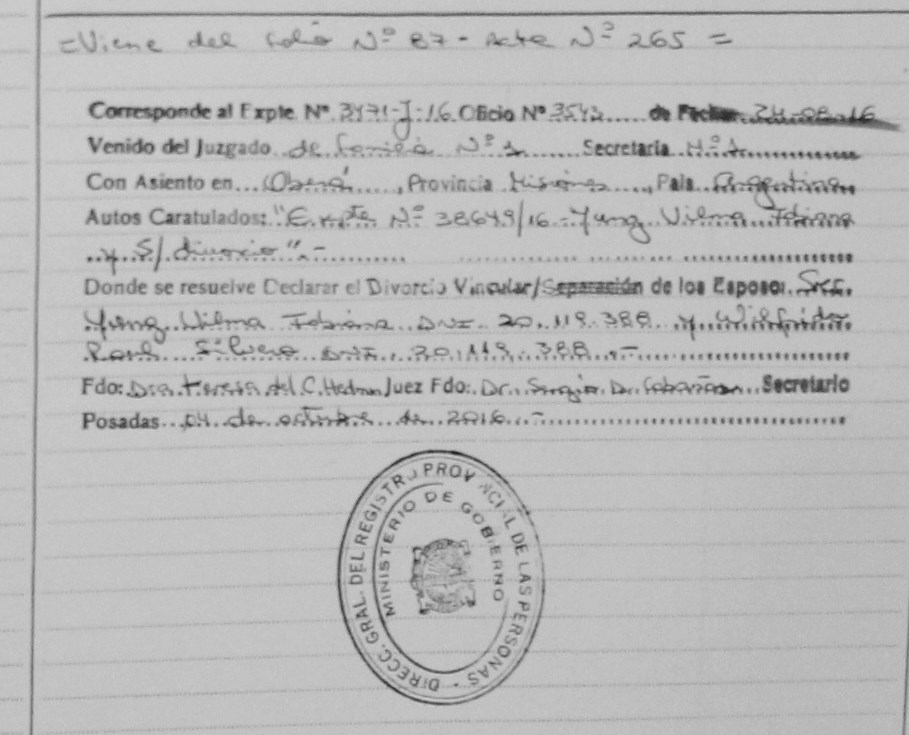 =Viene del folio Nº 87 - Acta Nº 265 =
Corresponde al Expte. Nº 3471-J-16 Oficio Nº 3543 de Fecha 24-08-16
Venido del Juzgado de Familia Nº 1 Secretaria
Con Asiento en Oberá, Provincia Misiones, Pais Argentina
Autos Caratulados: "Expte Nº 38649/16 - Yung Vilma Fabiana
y S/ divorcio".-
Donde se resuelve Declarar el Divorcio Vincular/Separación de los Esposos Sres.
Yung Vilma Fabiana DNI 20.119.388 y Wilfrido
Raul Silvero DNI 20.119.388.-
Fdo: Dra. Juez Fdo: Dr. Sergio D. Secretario
Posadas 04 de octubre de 2016.-
DIRECC. GRAL. DEL REGISTRO PROVINCIAL DE LAS PERSONAS
MINISTERIO DE GOBIERNO